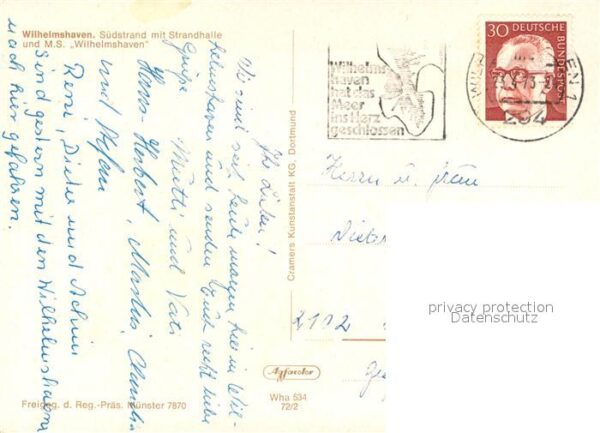 Wilhelmshaven. Südstrand mit Strandhalle
und M.S. „Wilhelmshaven"
Ihr Lieben!
Wir sind seit heute morgen hier in Wil-
helmshaven und senden Euch recht liebe
Grüße Mutti und Vati
Hans-Herbert,
und Stefan
Reni, Dieter und Achim
Sind gestern mit den Wilhelmshavenern
nach hier gefahren.
Cramers Kunstanstalt KG, Dortmund
Wilhelms-
haven
hat das
Meer
ins Herz
geschlossen
30
DEUTSCHE
BUNDESPOST
294
Herrn u. Frau
Dieter
2102
privacy protection
Datenschutz
Agfacolor
Wha 534
72/2
Freigeg. d. Reg.-Präs. Münster 7870